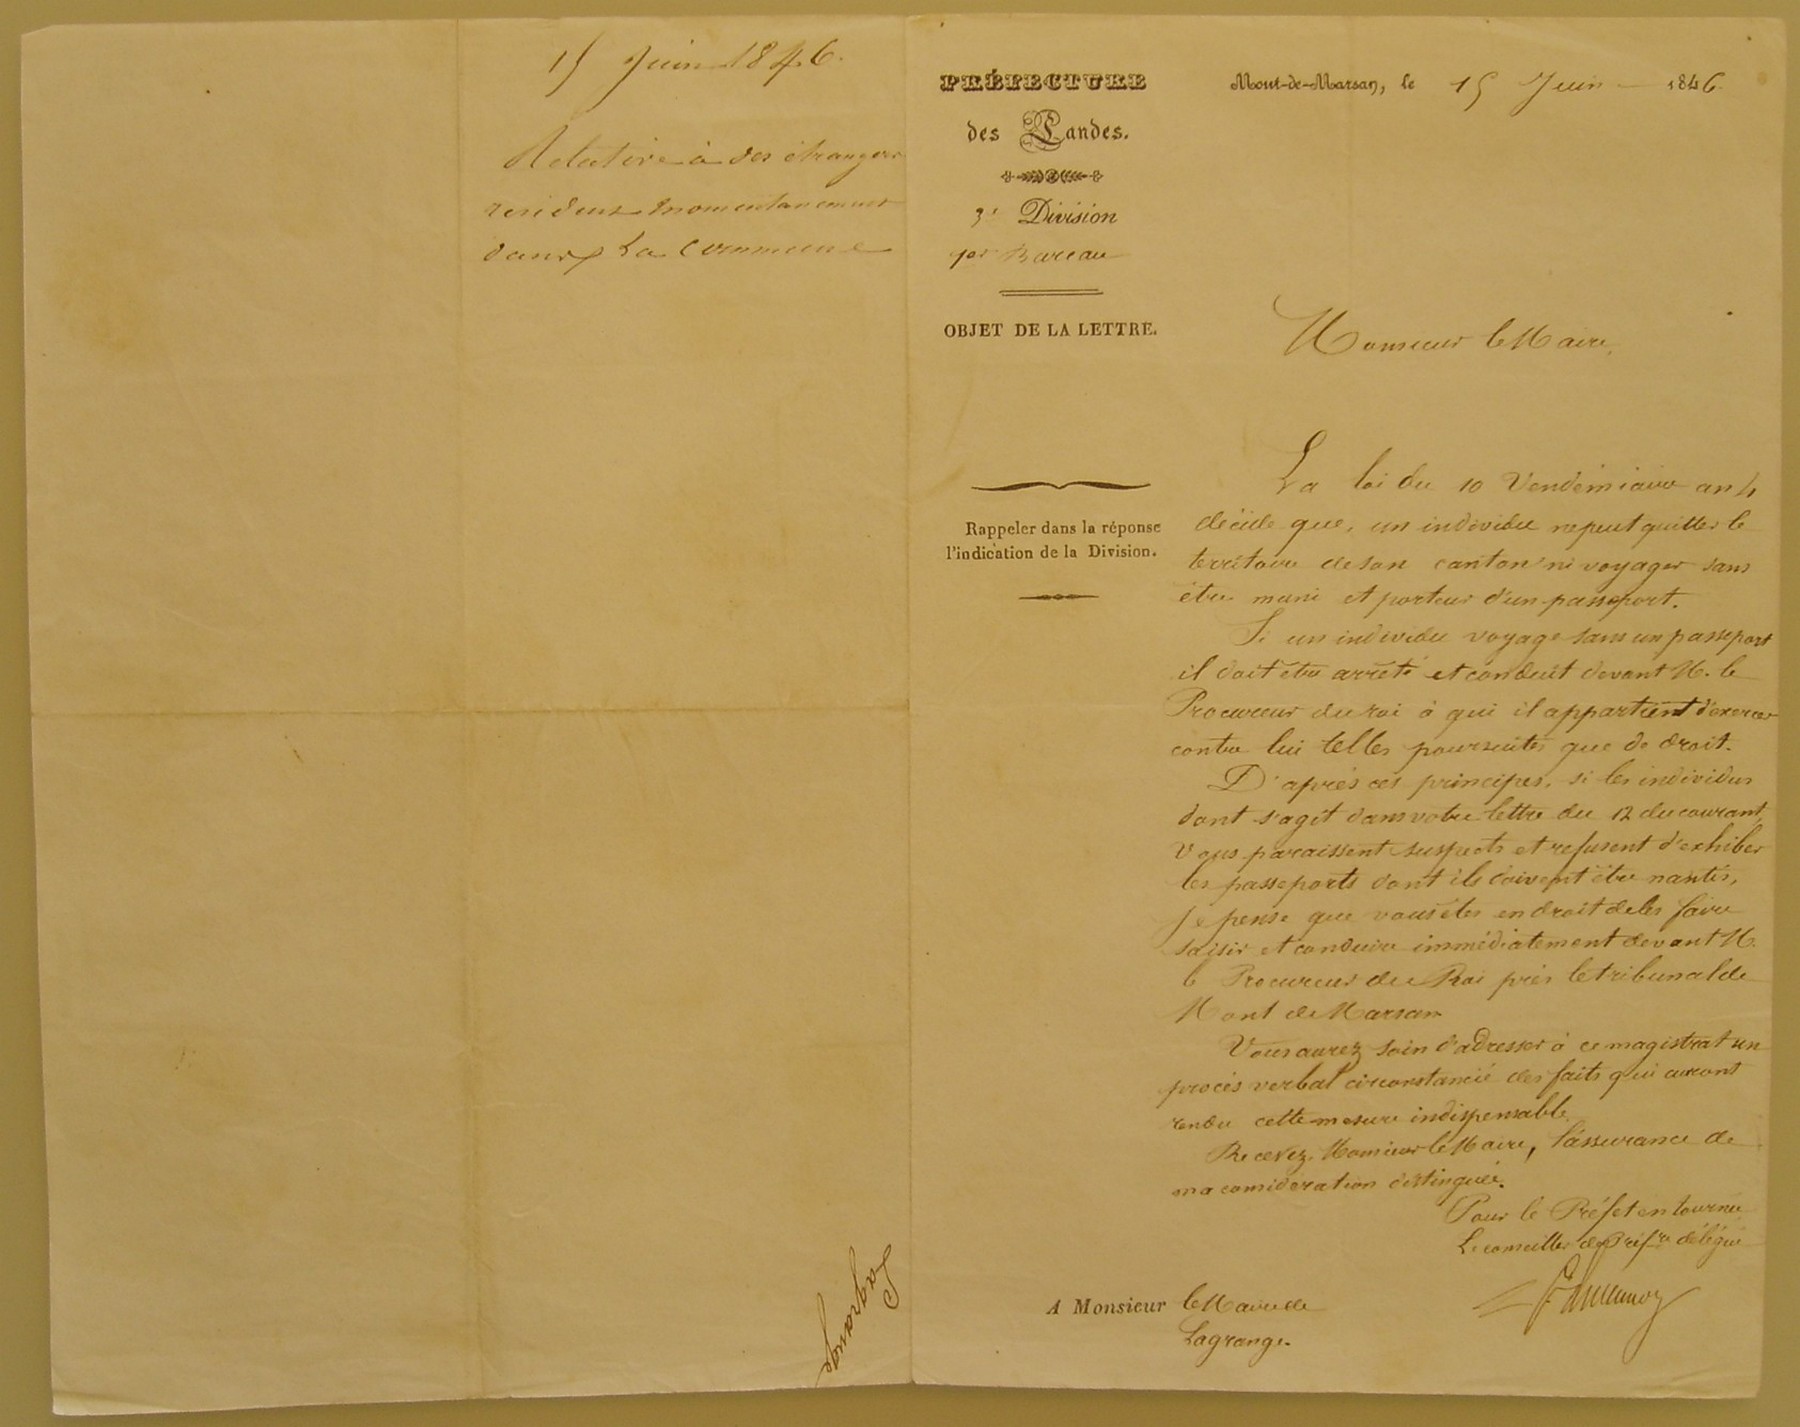 15 Juin 1846.
Relative à des étrangers
residens momentanement
dans la Commune
Lagrange
PRÉFECTURE
des Landes.
3e Division
1er Bureau
OBJET DE LA LETTRE.
Rappeler dans la réponse
l'indication de la Division.
Mont-de-Marsan, le 15 Juin 1846.
Monsieur le Maire,
La loi du 10 Vendémiaire an 4
décide que, un individu ne peut quitter le
territoire de son canton ni voyager sans
être muni et porteur d'un passeport.
Si un individu voyage sans un passeport
il doit être arrêté et conduit devant M. le
Procureur du roi à qui il appartient d'exercer
contre lui telles poursuites que de droit.
D'après ces principes, si les individus
dont s'agit dans votre lettre du 12 du courant,
Vous paraissent suspects et refusent d'exhiber
les passeports dont ils doivent être nantis,
Je pense que vous êtes en droit de les faire
saisir et conduire immédiatement devant M.
le Procureur du Roi près le tribunal de
Mont de Marsan
Vous aurez soin d'adresser à ce magistrat un
procès verbal circonstancié des faits qui auront
rendu cette mesure indispensable.
Recevez, Monsieur le Maire, l'assurance de
ma considération distinguée.
Pour le Préfet en tournée
Le conseiller de Préfre délégué
A Monsieur le Maire de
Lagrange.